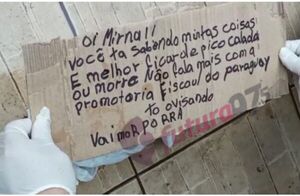 Oi Mirna!!
você ta sabendo muitas coisas
E melhor ficar de pico calada
ou morre Não fala mais com a
promotoria Fiscoul do paraguay
to avisando
Vai morrer PORRA
futura97